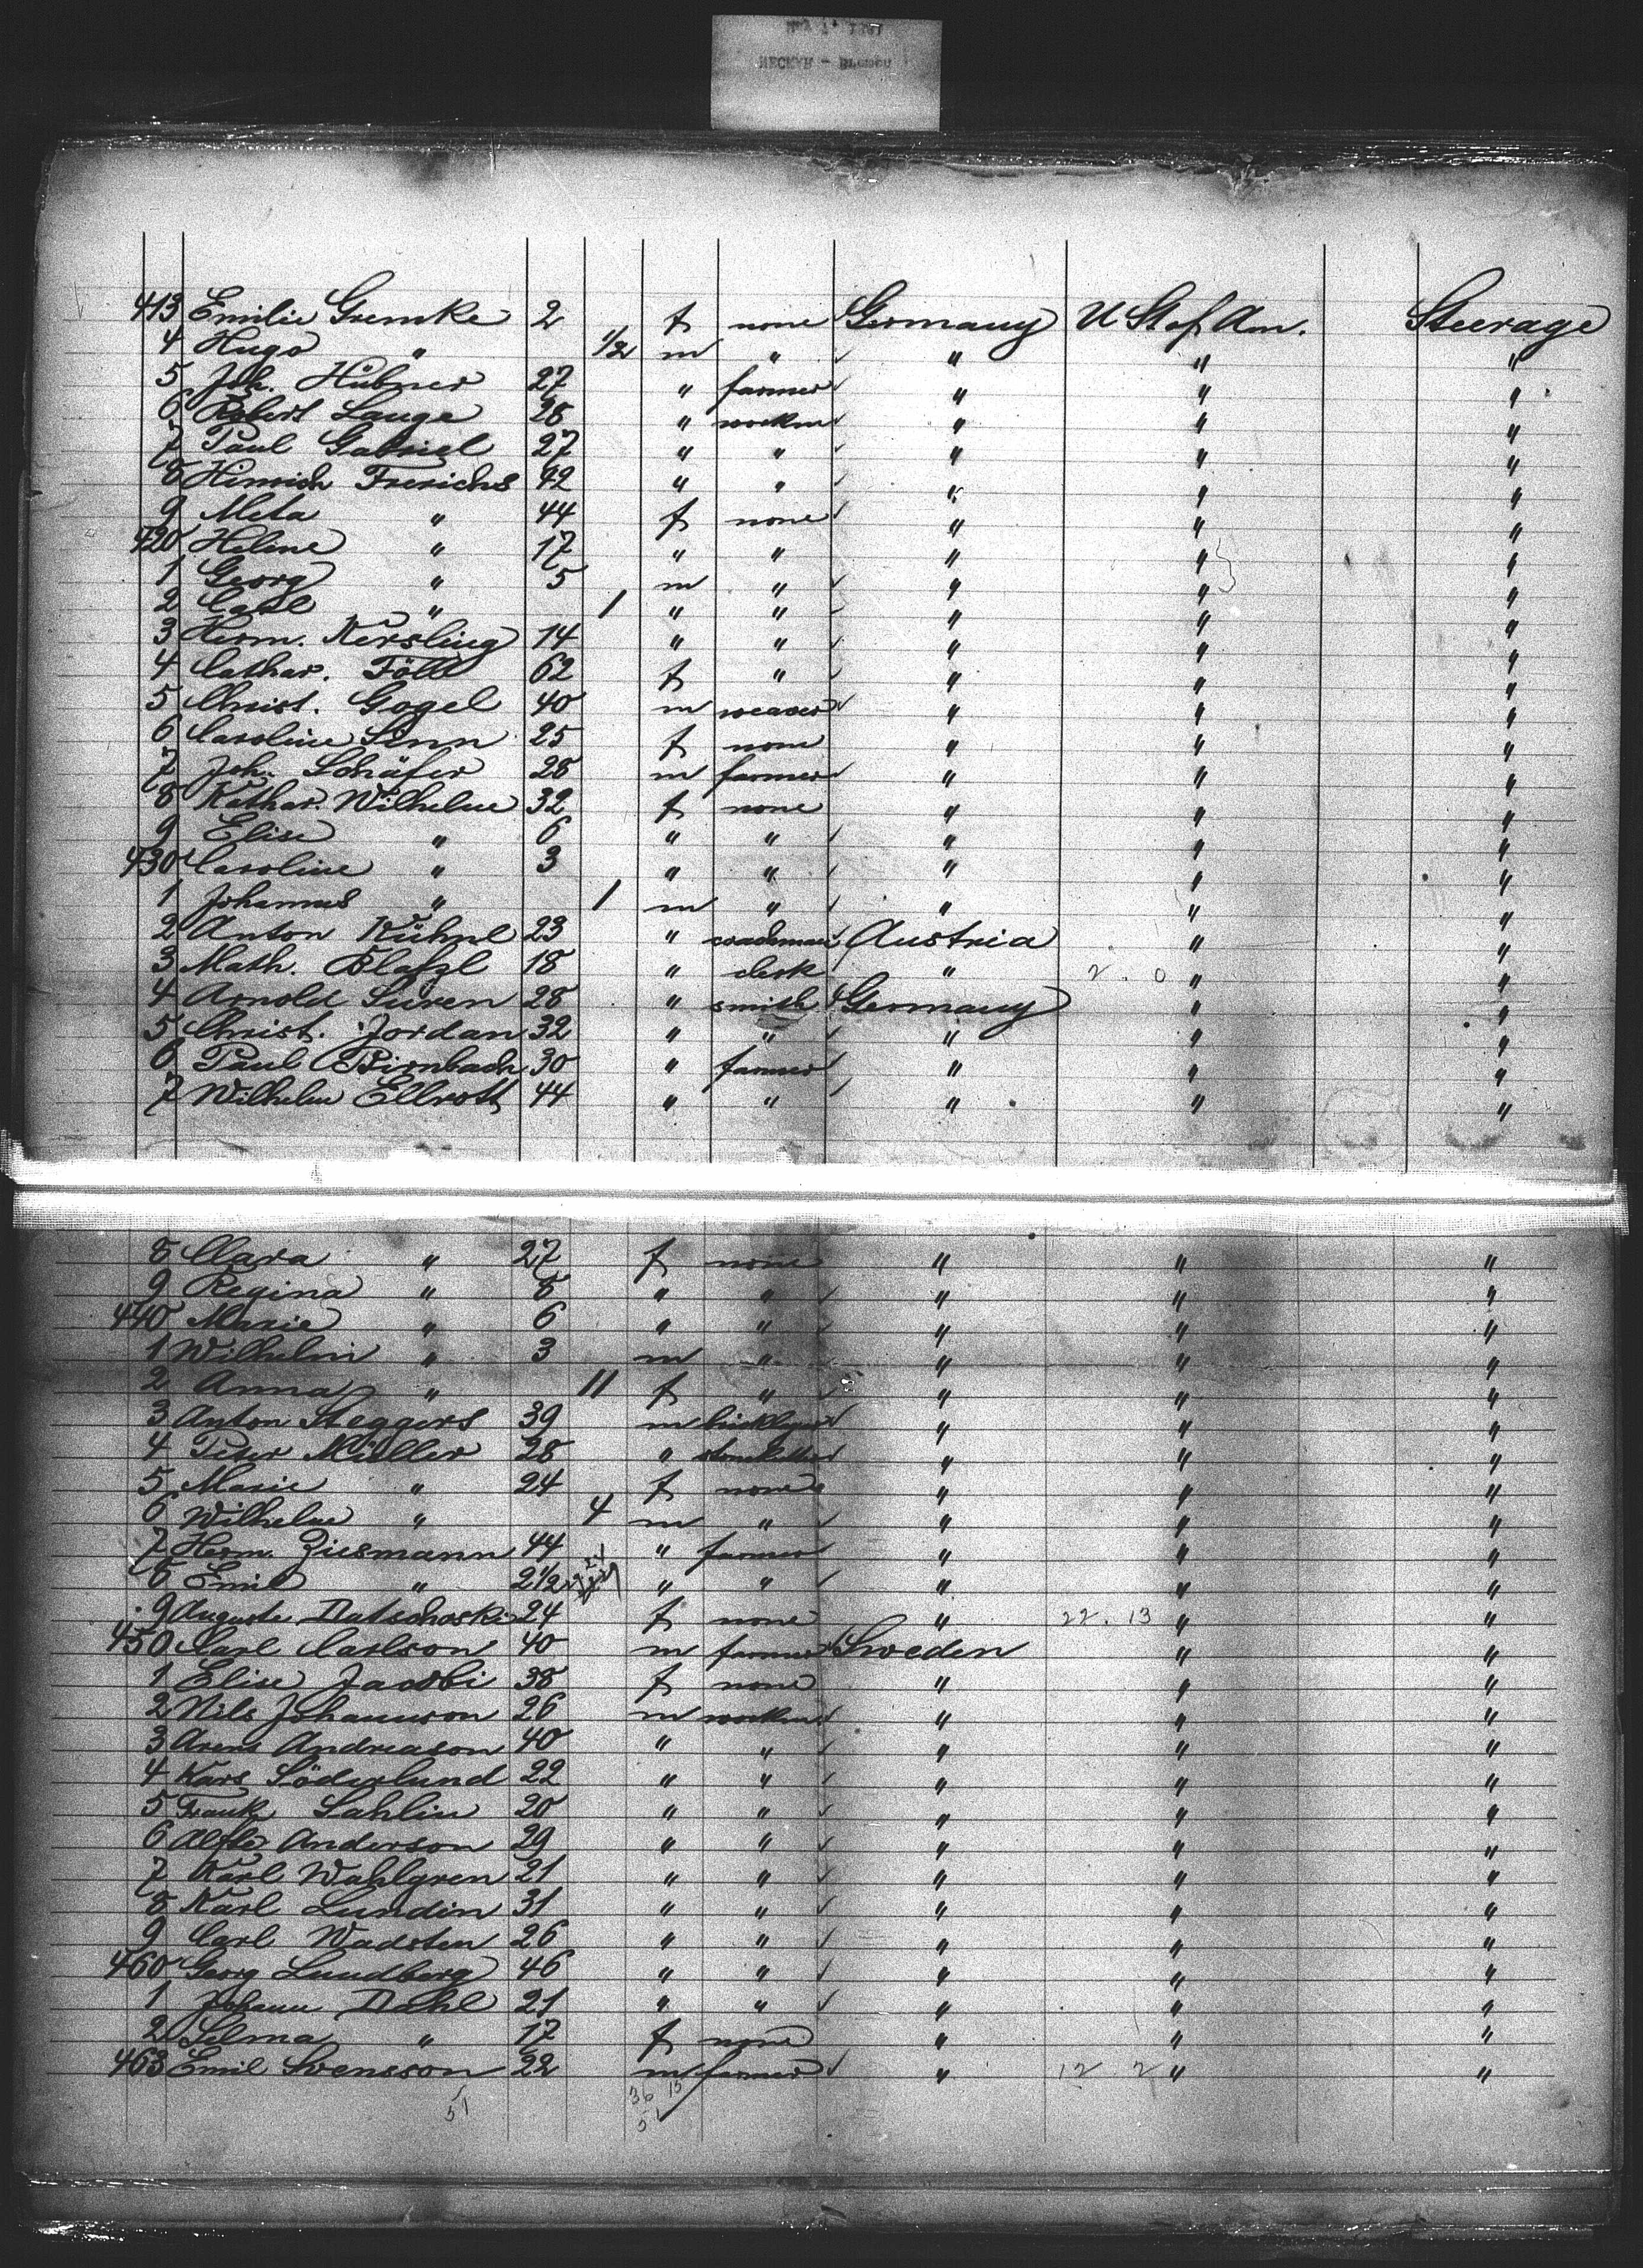 NECKAR - Bremen
413 Emilie Gremke 2 f none Germany U St of Am. Steerage
4 Hugo " 1/2 m " " " "
5 Joh. Hübner 27 " farmer " " "
6 Robert Lange 28 " workm " " "
7 Paul Gabriel 27 " " " " "
8 Hinrich Frerichs 42 " " " " "
9 Meta " 44 f none " " "
420 Helene " 17 " " " " "
1 Georg " 5 m " " " "
2 Carl " 1 " " " " "
3 Herm. Kersling 14 " " " " "
4 Cathar. Föll 62 f " " " "
5 Christ. Gogel 40 m weaver " " "
6 Caroline Sinn 25 f none " " "
7 Joh. Schäfer 28 m farmer " " "
8 Kathar. Wilhelm 32 f none " " "
9 Elise " 6 " " " " "
430 Caroline " 3 " " " " "
1 Johannes " 1 m " " " "
2 Anton Kühnl 23 " Austria " "
3 Math. Blafzl 18 " clerk " 2.0 " "
4 Arnold Suren 28 " smith Germany " "
5 Christ. Jordan 32 " " " " "
6 Paul Birnbach 30 " farmer " " "
7 Wilhelm Ellrott 44 " " " " "
8 Clara " 27 f none " " "
9 Regina " 8 " " " " "
440 Marie " 6 " " " " "
1 Wilhelm " 3 m " " " "
2 Anna " 11 f " " " "
3 Anton Steggers 39 m bricklayer " " "
4 Peter Müller 28 " stonecutter " " "
5 Marie " 24 f none " " "
6 Wilhelm " 4 m " " " "
7 Herm. Ziesmann 44 " farmer " " "
8 Emil " 21/2 " " " " "
9 Auguste Datschoski 24 f none " 22.13 " "
450 Carl Carlson 40 m farmer Sweden " "
1 Elise Jacobi 38 f none " " "
2 Nils Johannson 26 m workm " " "
3 Arent Andreason 40 " " " " "
4 Kars Söderlund 22 " " " " "
5 Frank Sahlin 20 " " " " "
6 Alfr. Anderson 29 " " " " "
7 Karl Wahlgren 21 " " " " "
8 Karl Lundin 31 " " " " "
9 Carl Wadsten 26 " " " " "
460 Georg Lundberg 46 " " " " "
1 Johann Dahl 21 " " " " "
2 Selma " 17 f none " " "
463 Emil Svensson 22 m farmer " 12 2 " "
51 36 15
51